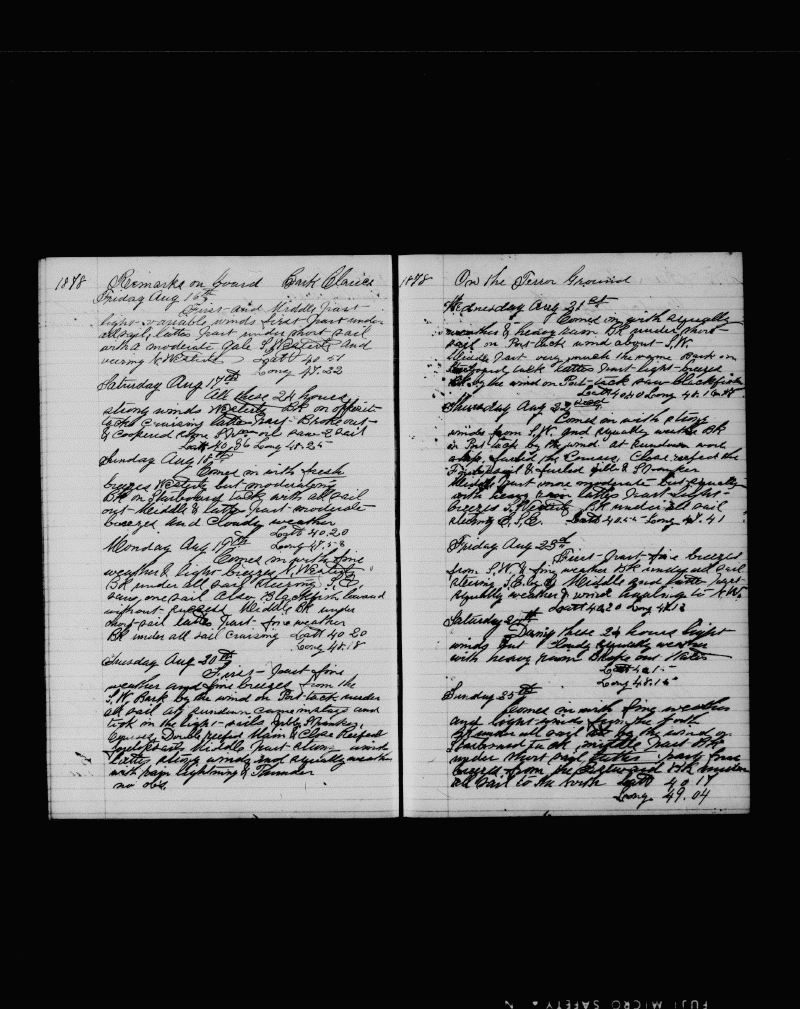 1878 Remarks on board Bark Clarice
Friday Aug 16th
First and Middle part
light variable winds first part under
all sail, latter part under short sail
with a moderate Gale S. Westerly and
veering to Westerly Latt 40.51
Long 47.22
Saturday Aug 17th
All these 24 hours
strong winds Westerly BK on off
cruising latter part Broke out
& Coopered saw a sail
Latt Long 48.25
Sunday Aug 18th
Comes in with fresh
breezes Westerly but moderating
BK on Starboard tack with all sail
out Middle & latter part moderate
breezes and Cloudy weather
Latt 40.20
Long
Monday Aug 19th
Comes in with fine
weather & light breezes S. Westerly
BK under all sail steering S.E.
saw one sail also Blackfish
without success Middle BK under
short sail latter part fine weather
BK under all sail Cruising Latt 40 20
Long 48.18
Tuesday Aug 20th
First part fine
weather and fine breezes from the
S.W. Bark by the wind on Port tack under
all sail at sundown came in stays and
took in the light sails
Double reefed Main & Close Reefed
Middle part strong winds
Latter strong winds and squally weather
with rain lightning & Thunder
no obs.
1878 On the Terror Ground
Wednesday Aug 21st
Comes in with squally
weather & heavy rain BK under short
sail on Port tack wind about S.W.
Middle part very much the same Bark on
Starboard tack latter part light breezes
BK by the wind on Port tack saw blackfish
Latt 40 40 Long 48.
Thursday Aug 22
Comes in with strong
winds from S.W. and squally weather BK
on Port tack by the wind. at sundown wore
ship, furled the Courses, Close reefed the
& furled Jibb & Spanker
Middle part more moderate but squally
with heavy rain latter part light
breezes S. Westerly BK under all sail
steering E.S.E. Latt 40.55 Long 48.41
Friday Aug 23d
First part fine breezes
from S.W. & fine weather BK under all sail
steering Middle and latter part
squally weather & wind hauling to NW.
Latt 40.20 Long 48.13
Saturday 24th
During these 24 hours light
winds but squally weather
with heavy rain
Latt
Long 48.15
Sunday 25th
Comes in with fine weather
and light winds from the
BK under all sail by the wind on
Starboard tack middle part BK
under short sail latter part fine
breezes from the BK under
all sail to the North Latt 40 17
Long 49.04
FUJI MICRO SAFETY